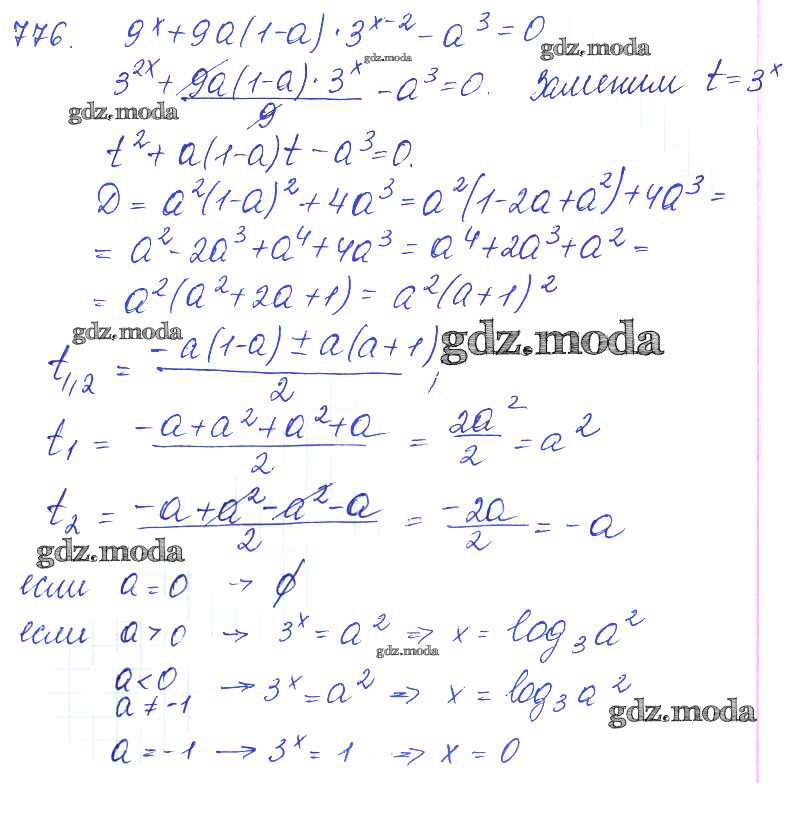 776. 9^x + 9a(1-a)·3^(x-2) - a^3 = 0
gdz.moda
gdz.moda
3^(2x) + 9a(1-a)·3^x / 9 - a^3 = 0. Заменим t = 3^x
gdz.moda
t^2 + a(1-a)t - a^3 = 0.
D = a^2(1-a)^2 + 4a^3 = a^2(1-2a+a^2) + 4a^3 =
= a^2 - 2a^3 + a^4 + 4a^3 = a^4 + 2a^3 + a^2 =
= a^2(a^2 + 2a + 1) = a^2(a+1)^2
gdz.moda
gdz.moda
t_1,2 = (-a(1-a) ± a(a+1)) / 2 ;
t_1 = (-a + a^2 + a^2 + a) / 2 = 2a^2 / 2 = a^2
t_2 = (-a + a^2 - a^2 - a) / 2 = -2a / 2 = -a
gdz.moda
если a = 0 → ∅
если a > 0 → 3^x = a^2 ⇒ x = log_3 a^2
gdz.moda
a < 0
a ≠ -1 → 3^x = a^2 ⇒ x = log_3 a^2
gdz.moda
a = -1 → 3^x = 1 ⇒ x = 0